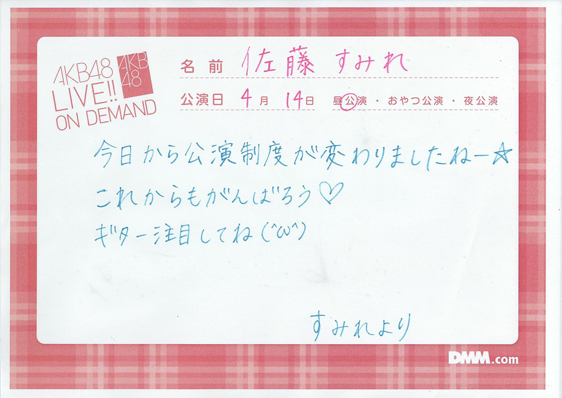 AKB48
LIVE!!
ON DEMAND
AKB
48
名前 佐藤 すみれ
公演日 4月 14日 昼公演・おやつ公演・夜公演
今日から公演制度が変わりましたねー☆
これからもがんばろう♡
ギター注目してね(^ω^)
すみれより
DMM.com